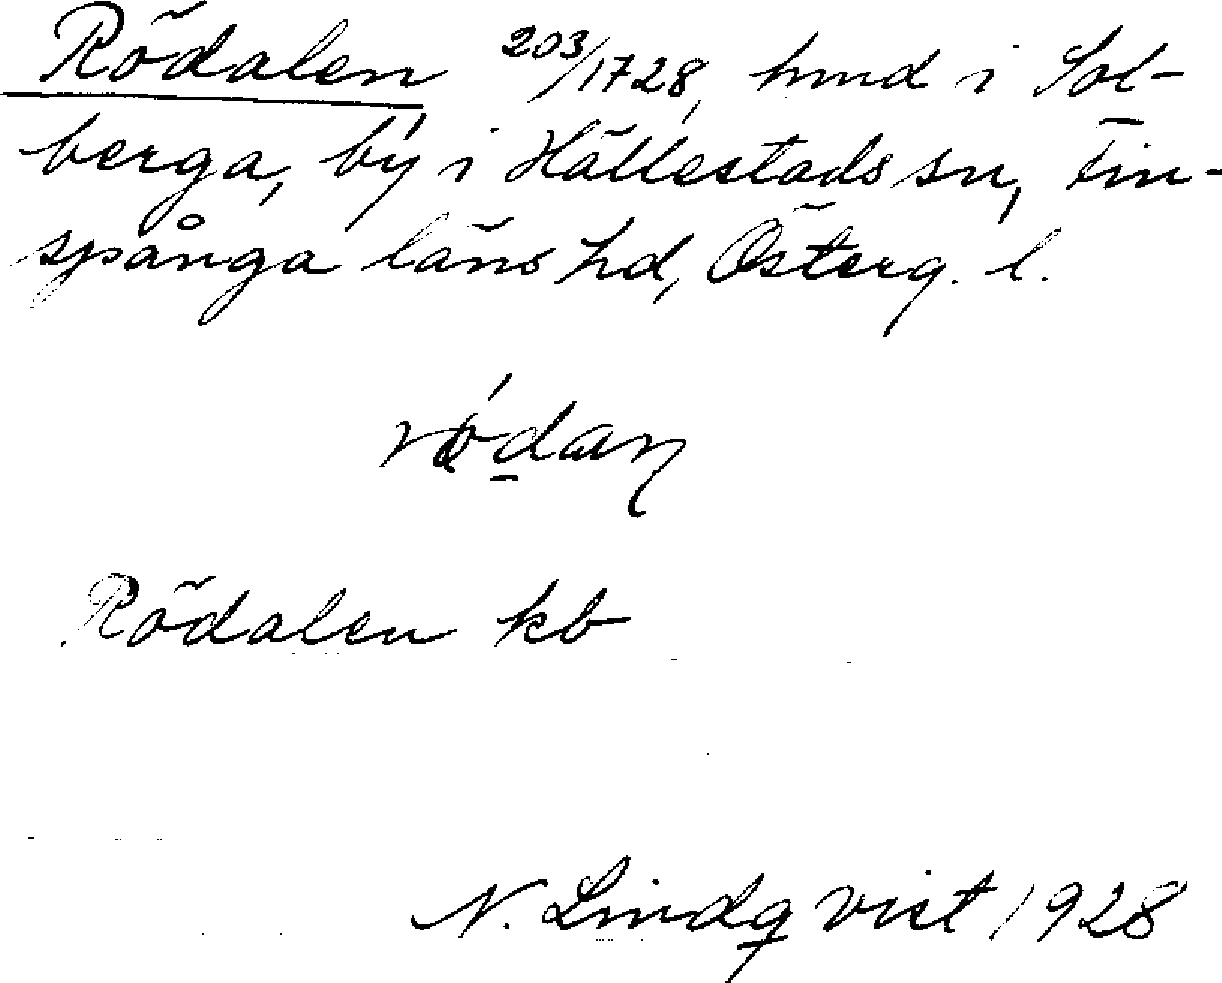 Rödalen 203/1728, hmd i Sol-
berga, by i Hällestads sn, Fin-
spånga läns hd, Österg. l.
Rödalen kb
N. Lindqvist 1928